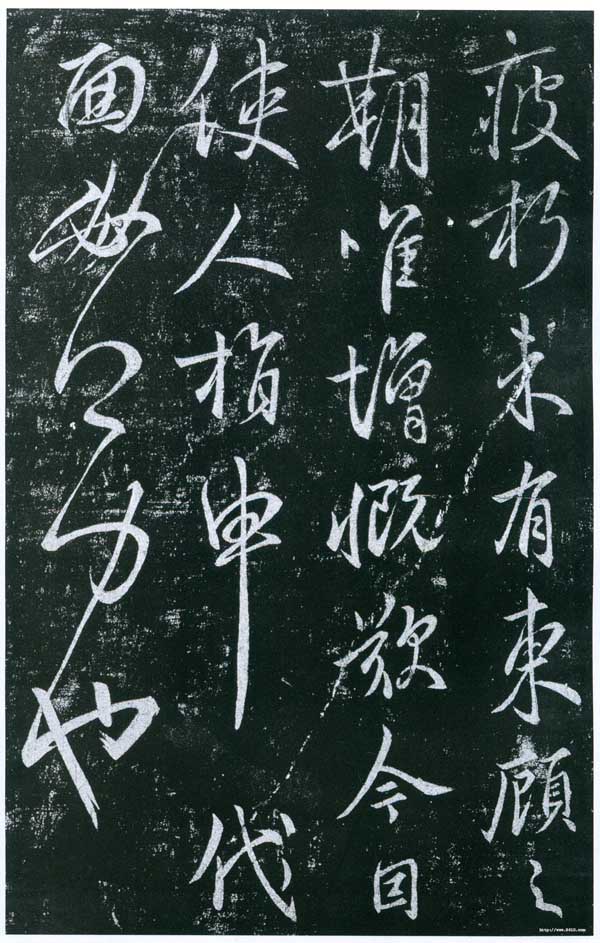 疲朽未有東顧之
期唯增慨歎今因
使人指申代
面也
http://www.9610.com